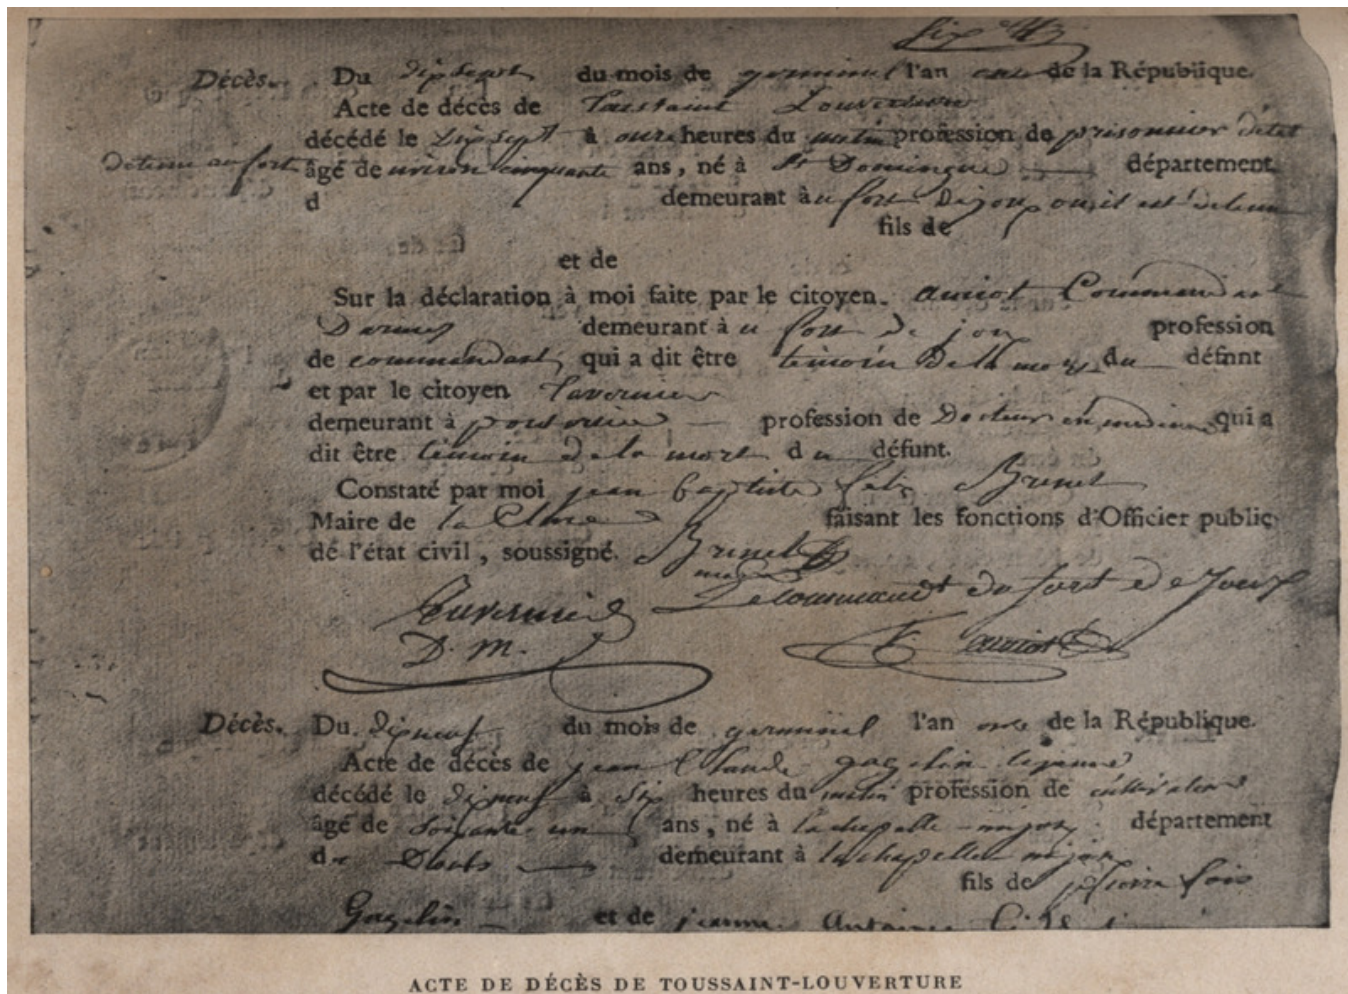 Six
Décès. Du dix sept du mois de germinal l'an onze de la République.
Acte de décès de Toussaint Louverture
décédé le dix sept à onze heures du matin profession de prisonnier detat
detenu au fort âgé de environ cinquante ans, né à St Domingue département
d demeurant àu fort Dejoux ou il est detenu
fils de
et de
Sur la déclaration à moi faite par le citoyen amiot Commandant
Darmes demeurant à u fort de joux profession
de commandant qui a dit être témoin De la mort du défunt
et par le citoyen Tavernier
demeurant à profession de Docteur en medecine qui a
dit être témoin de la mort du défunt.
Constaté par moi jean baptiste felix Brunet
Maire de la Cluse faisant les fonctions d'Officier public
de l'état civil, soussigné. Brunet
Tavernier Le commandt du fort de Joux
D. M. amiot
Décès. Du dix neuf du mois de germinal l'an onze de la République.
Acte de décès de jean Claude gagelin
décédé le dix neuf à Six heures du matin profession de cultivateur
âgé de Soixante un ans, né à la chapelle mijoux département
du Doubs demeurant à la chapelle mijoux
fils de pierre
Gagelin et de jeanne Antoine
ACTE DE DÉCÈS DE TOUSSAINT-LOUVERTURE